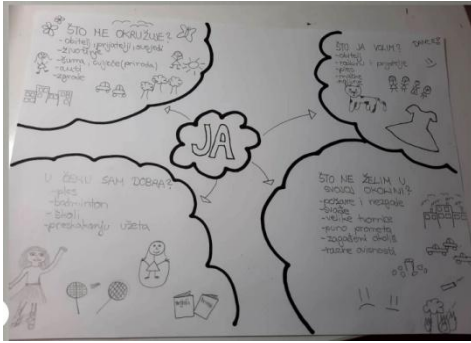 ŠTO ME OKRUŽUJE?
-obitelj, prijatelji, susjedi
-životinje
-šuma, cvijeće (priroda)
-auti
-zgrade
ŠTO JA VOLIM?
-obitelj
-ples
JA
U ČEMU SAM DOBRA?
-ples
-badminton
-školi
-preskakanju užeta
ŠTO NE ŽELIM U
SVOJOJ OKOLINI?
-požare i nezgode
-svađe
-velike tvornice
-puno prometa
-zagađeni okoliš
-razne ovisnosti